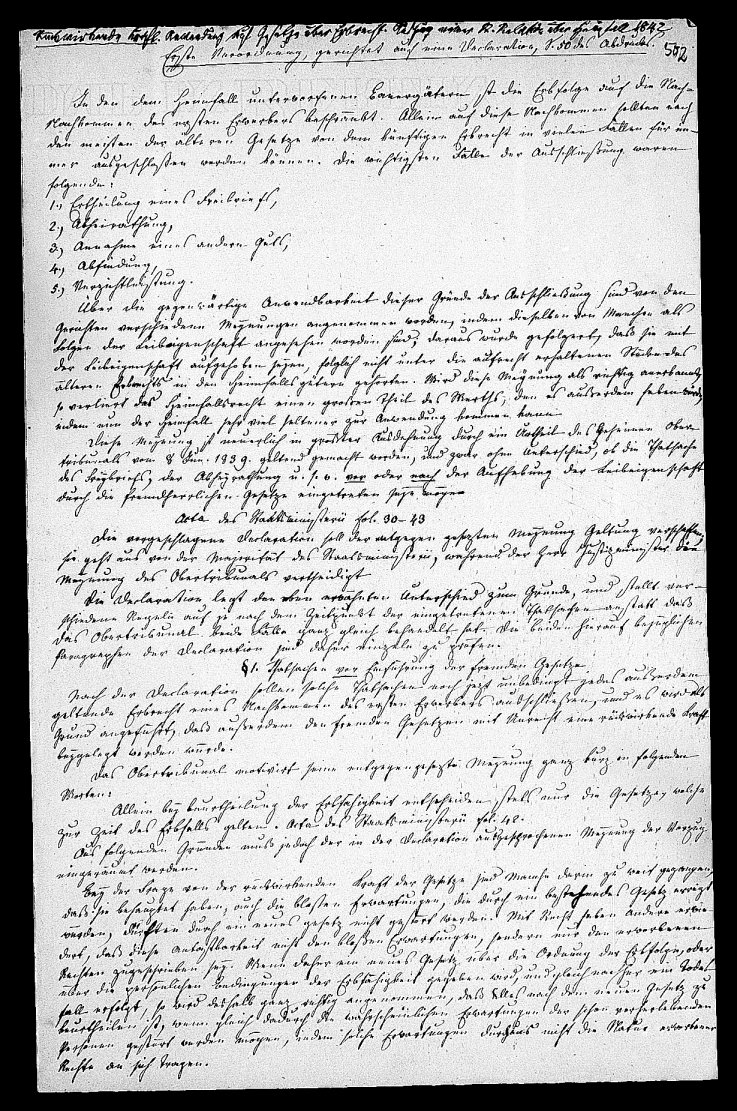 Rückwirkende Kraft. Anwendung auf Gesetze über Erbrecht. Auszug einer K. Relation über Heimfall 1842
Erste Verordnung, gerichtet auf eine Declaration, S. 50 des Abdrucks.
502
In den dem Heimfall unterworfenen Bauergütern ist die Erbfolge auf die Nach-
Nachkommen des ersten Erwerbers beschränkt. Allein auch diese Nachkommen sollten nach
den meisten der älteren Gesetze von dem künftigen Erbrecht in vielen Fällen für im-
mer ausgeschlossen werden können. Die wichtigsten Fälle der Ausschließung waren
folgende:
1.) Ertheilung eines Freibriefs,
2.) Abheirathung,
3.) Annahme eines andern Guts,
4.) Abfindung,
5.) Verzichtleistung.
Über die gegenwärtige Anwendbarkeit dieser Gründe der Ausschließung sind von den
Gerichten verschiedene Meynungen angenommen worden, indem dieselben von Manchen als
Folgen der Leibeigenschaft angesehen worden sind. Daraus wurde gefolgert, daß sie mit
der Leibeigenschaft aufgehoben seyen, folglich nicht unter die aufrecht erhaltenen Stücke des
älteren Erbrechts in den Heimfallsgütern gehörten. Wird diese Meynung als richtig anerkannt,
so verliert das Heimfallsrecht einen großen Theil des Werths, den es außerdem haben würde,
indem nun der Heimfall sehr viel seltener zur Anwendung kommen kann.
Diese Meynung ist neuerlich in größter Ausdehnung durch ein Urtheil des Geheimen Ober-
tribunals vom 8 Jun. 1839. geltend gemacht worden, und zwar ohne Unterschied, ob die Thatsache
des Freybriefs, der Abheyrathung u. s. w. vor oder nach der Aufhebung der Leibeigenschaft
durch die fremdherrlichen Gesetze eingetreten seyn möge.
Acta des Staatsministerii fol. 30-43
Die vorgeschlagene Declaration soll der entgegen gesetzten Meynung Geltung verschaffen;
sie geht aus von der Majorität des Staatsministerii, während der Herr Justizminister die
Meynung des Obertribunals vertheidigt.
Die Declaration legt den oben erwähnten Unterschied zum Grunde, und stellt ver-
schiedene Regeln auf je nach dem Zeitpunkt der eingetretenen Thatsachen, anstatt daß
das Obertribunal beide Fälle ganz gleich behandelt hat. Die beiden hierauf bezüglichen
Paragraphen der Declaration sind daher einzeln zu prüfen.
§ 1. Thatsachen vor Einführung der fremden Gesetze.
Nach der Declaration sollen solche Thatsachen noch jetzt unbedingt jedes außerdem
geltende Erbrecht eines Nachkommen des ersten Erwerbers ausschließen, und es wird als
Grund angeführt, daß außerdem den fremden Gesetzen mit Unrecht eine rückwirkende Kraft
beygelegt werden würde.
Das Obertribunal motivirt seine entgegengesetzte Meynung ganz kurz in folgenden
Worten:
Allein bey Beurtheilung der Erbfähigkeit entscheiden stets nur die Gesetze, welche
zur Zeit des Erbfalls gelten. Acta des Staatsministerii fol. 42.
Aus folgenden Gründen muß jedoch der in der Declaration ausgesprochenen Meynung der Vorzug
eingeräumt werden.
Bey der Frage von der rückwirkenden Kraft der Gesetze sind Manche darin zu weit gegangen,
daß sie behauptet haben, auch die bloßen Erwartungen, die durch ein bestehendes Gesetz erregt
würden, dürften durch ein neues Gesetz nicht gestört werden. Mit Recht haben Andere erwie-
dert, daß diese Unantastbarkeit nicht den bloßen Erwartungen, sondern nur den erworbenen
Rechten zugeschrieben sey. Wenn daher ein neues Gesetz über die Ordnung der Erbfolge, oder
über die persönlichen Bedingungen der Erbfähigkeit gegeben wird, und gleich nachher ein Todes-
fall erfolgt, so wird deshalb ganz richtig angenommen, daß Alles nach dem neuen Gesetz zu
beurtheilen ist, wenn gleich dadurch die wahrscheinlichen Erwartungen der schon vorher lebenden
Personen gestört werden mögen, indem solche Erwartungen durchaus nicht die Natur erworbener
Rechte an sich tragen.